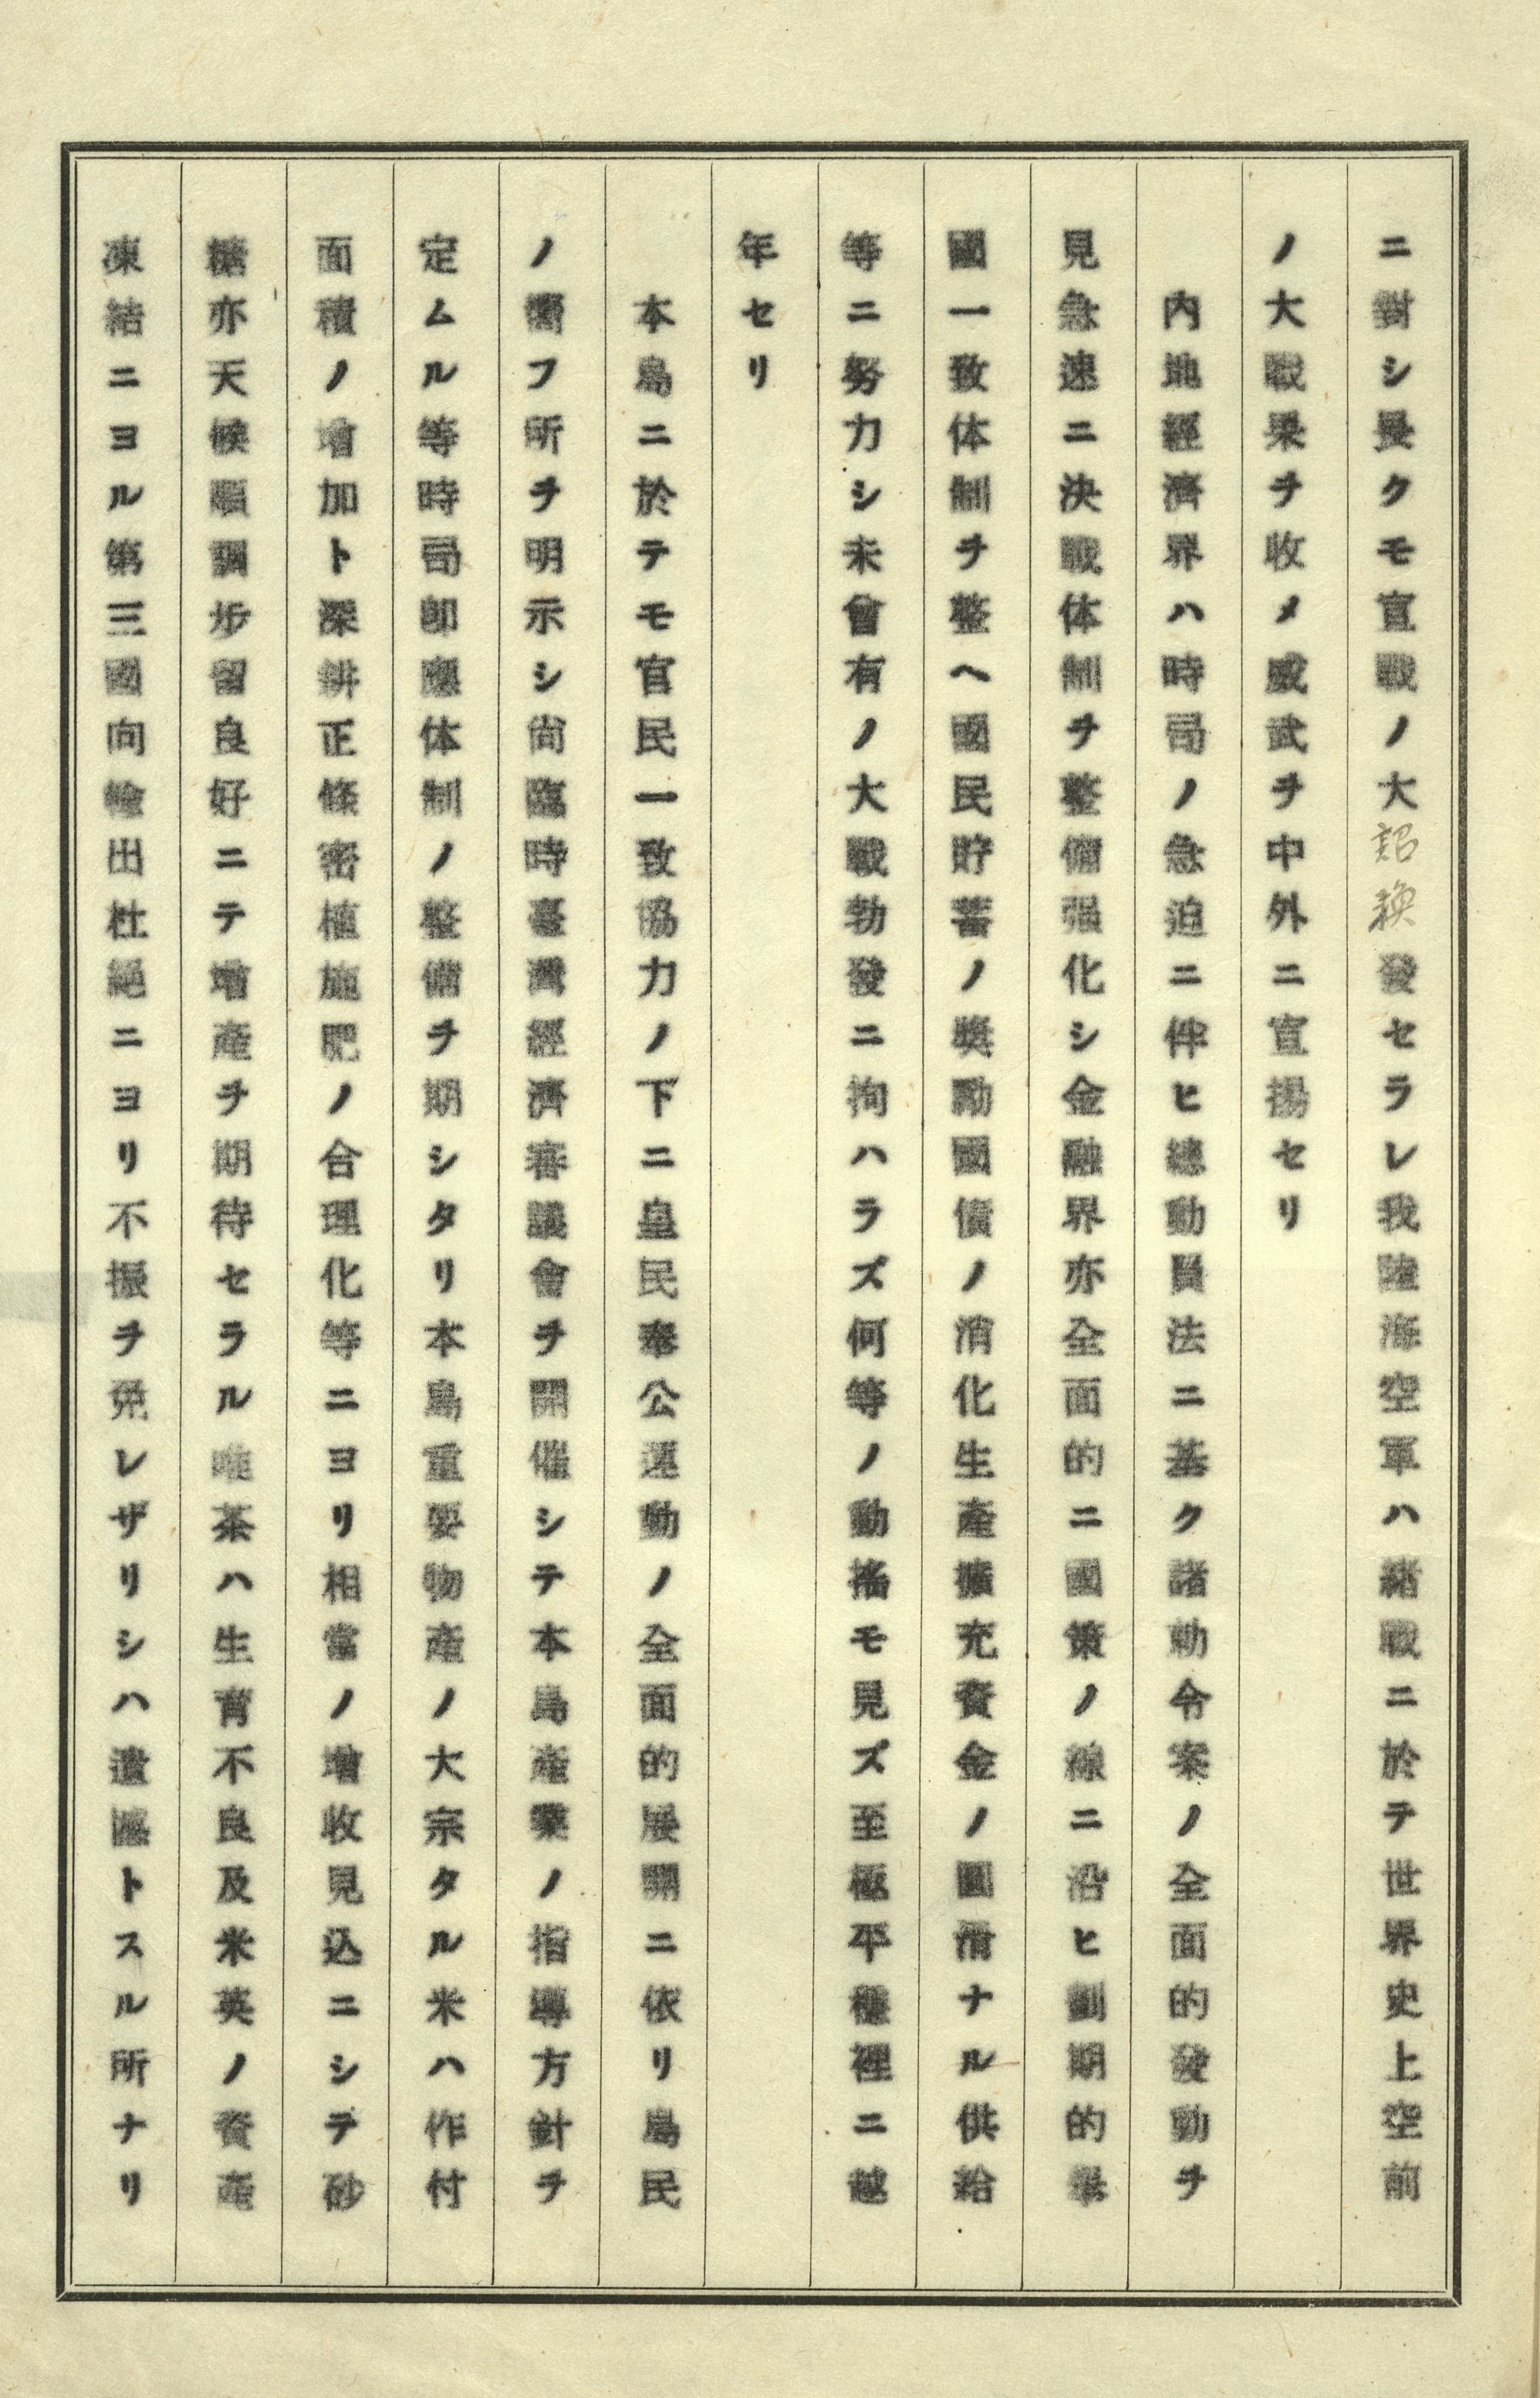 ニ對シ畏クモ宣戰ノ大詔渙發セラレ我陸海空軍ハ緒戰ニ於テ世界史上空前
ノ大戰果ヲ收メ威武ヲ中外ニ宣揚セリ
內地經濟界ハ時局ノ急迫ニ伴ヒ總動員法ニ基ク諸勅令案ノ全面的發動ヲ
見急速ニ決戰体制ヲ整備强化シ金融界亦全面的ニ國策ノ線ニ沿ヒ劃期的擧
國一致体制ヲ整ヘ國民貯蓄ノ奬勵國債ノ消化生產擴充資金ノ圓滑ナル供給
等ニ努力シ未曾有ノ大戰勃發ニ拘ハラズ何等ノ動搖モ見ズ至極平穩裡ニ越
年セリ
本島ニ於テモ官民一致協力ノ下ニ皇民奉公運動ノ全面的展開ニ依リ島民
ノ嚮フ所ヲ明示シ尙臨時臺灣經濟審議會ヲ開催シテ本島產業ノ指導方針ヲ
定ムル等時局卽應体制ノ整備ヲ期シタリ本島重要物產ノ大宗タル米ハ作付
面積ノ增加ト深耕正條密植施肥ノ合理化等ニヨリ相當ノ增收見込ニシテ砂
糖亦天候順調步留良好ニテ增產ヲ期待セラル唯茶ハ生育不良及米英ノ資產
凍結ニヨル第三國向輸出杜絕ニヨリ不振ヲ免レザリシハ遺憾トスル所ナリ